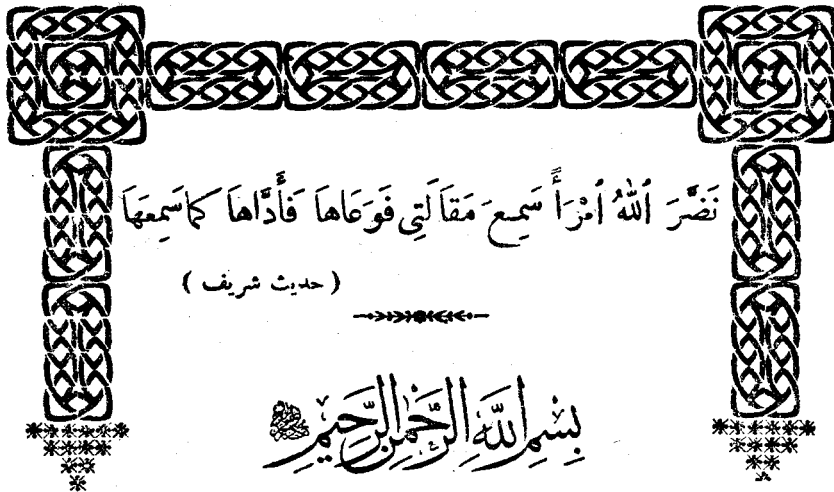 نَضَّرَ ٱللهُ ٱمْرَأً سَمِعَ مَقَالَتِي فَوَعَاهَا فَأَدَّاهَا كَمَا سَمِعَهَا
( حديث شريف )
بِسْمِ اللَّهِ الرَّحْمَنِ الرَّحِيمِ